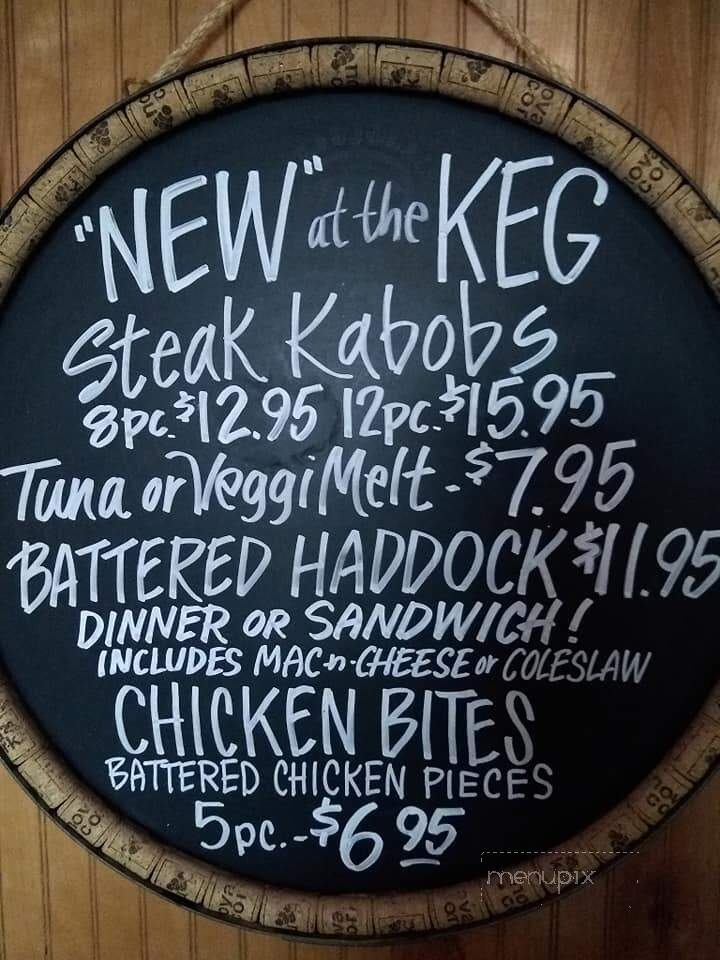 "NEW" at the KEG
Steak Kabobs
8pc.$12.95 12pc.$15.95
Tuna or Veggi Melt - $7.95
BATTERED HADDOCK $11.95
DINNER OR SANDWICH!
INCLUDES MAC-n-CHEESE or COLESLAW
CHICKEN BITES
BATTERED CHICKEN PIECES
5pc.-$6 95
menupix